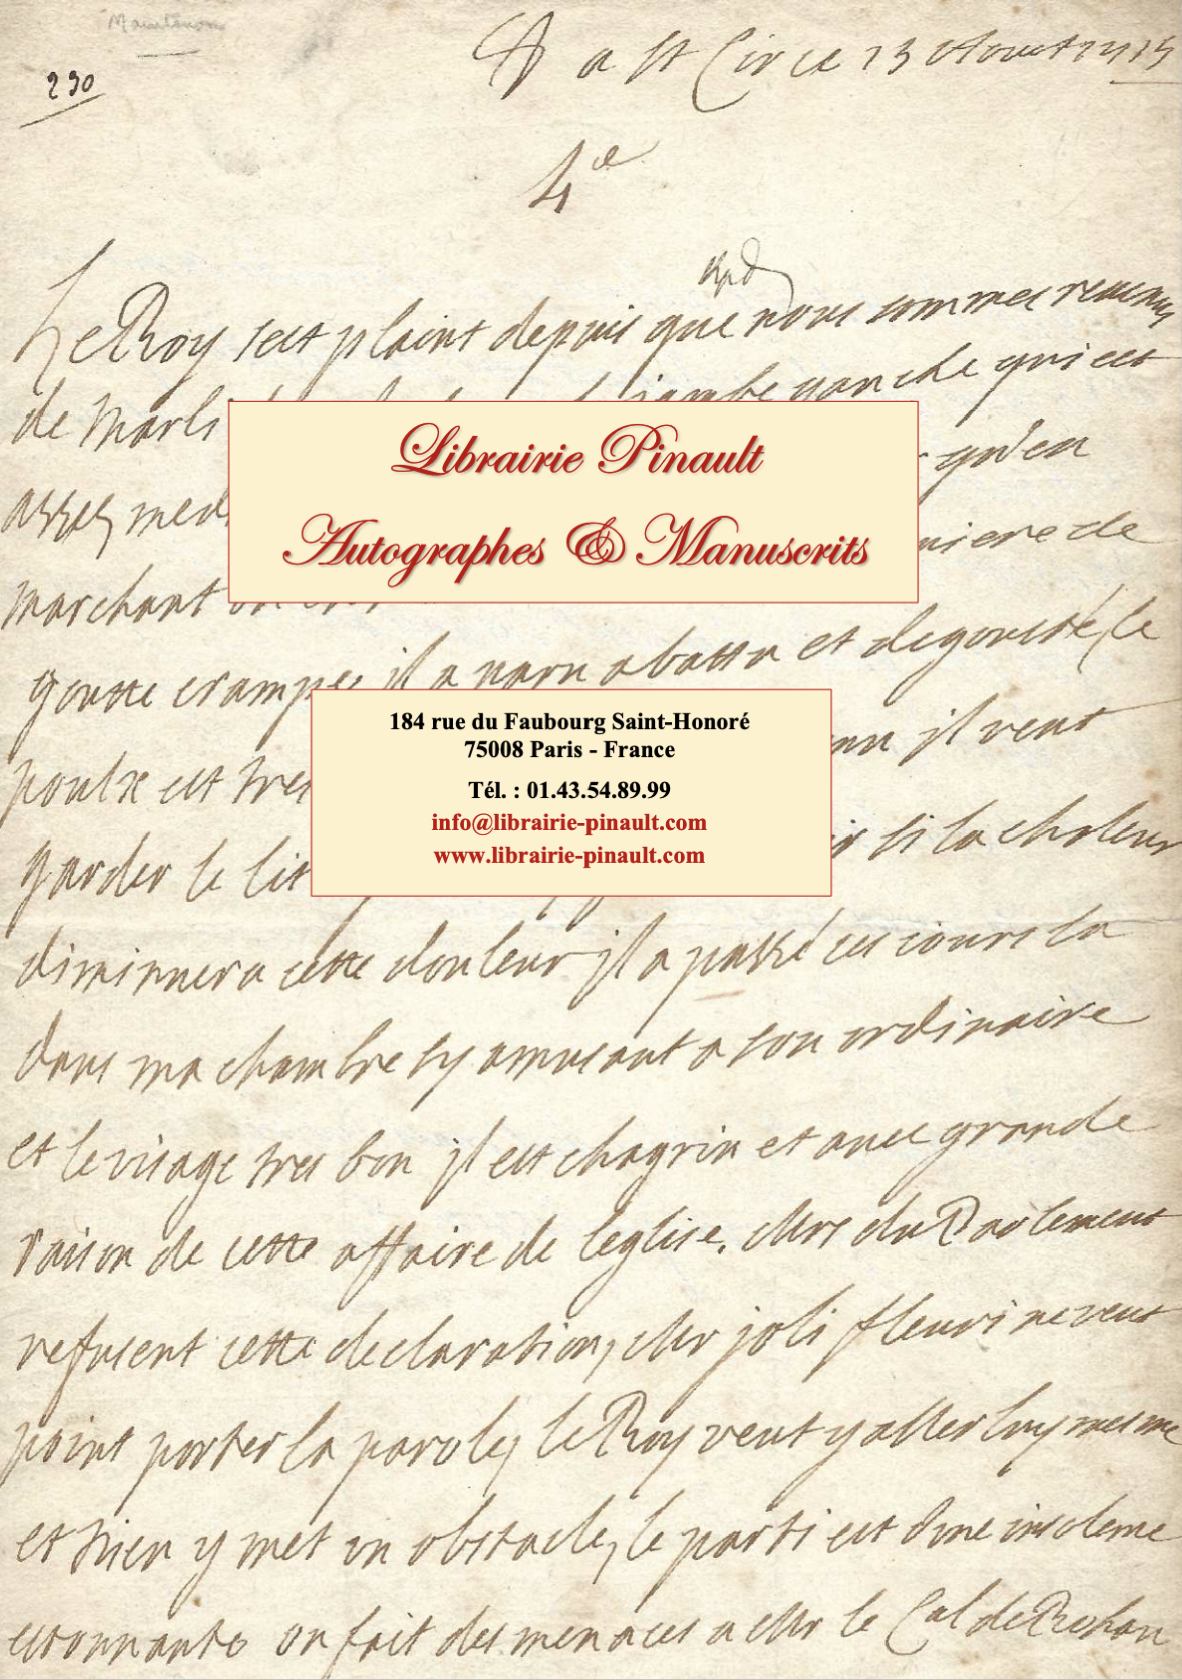 Maintenon
230
a St Cir ce 13 Aoust 1715
4e
Le Roy sest plaint depuis que nous sommes revenus
de Marli jambe gauche qui est
assez med qu'en
niere de
marchant
goutte crampe, il a paru abattu et degousté, le
poulx est tres il veut
garder le lit si la chaleur
diminuera cette douleur jl a passé ces jours la
dans ma chambre sy amusant a son ordinaire
et le visage tres bon jl est chagrin et avec grande
raison de cette affaire de leglise, Mrs du Parlement
refusent cette declaration, Mr joli fleuri ne veut
point porter la parole, le Roy veut y aller luy mesme
et Dieu y met un obstacle, le parti est dune insolence
estonnante on fait des menaces a Mr le Cal de Rohan
Librairie Pinault
Autographes & Manuscrits
184 rue du Faubourg Saint-Honoré
75008 Paris - France
Tél. : 01.43.54.89.99
info@librairie-pinault.com
www.librairie-pinault.com